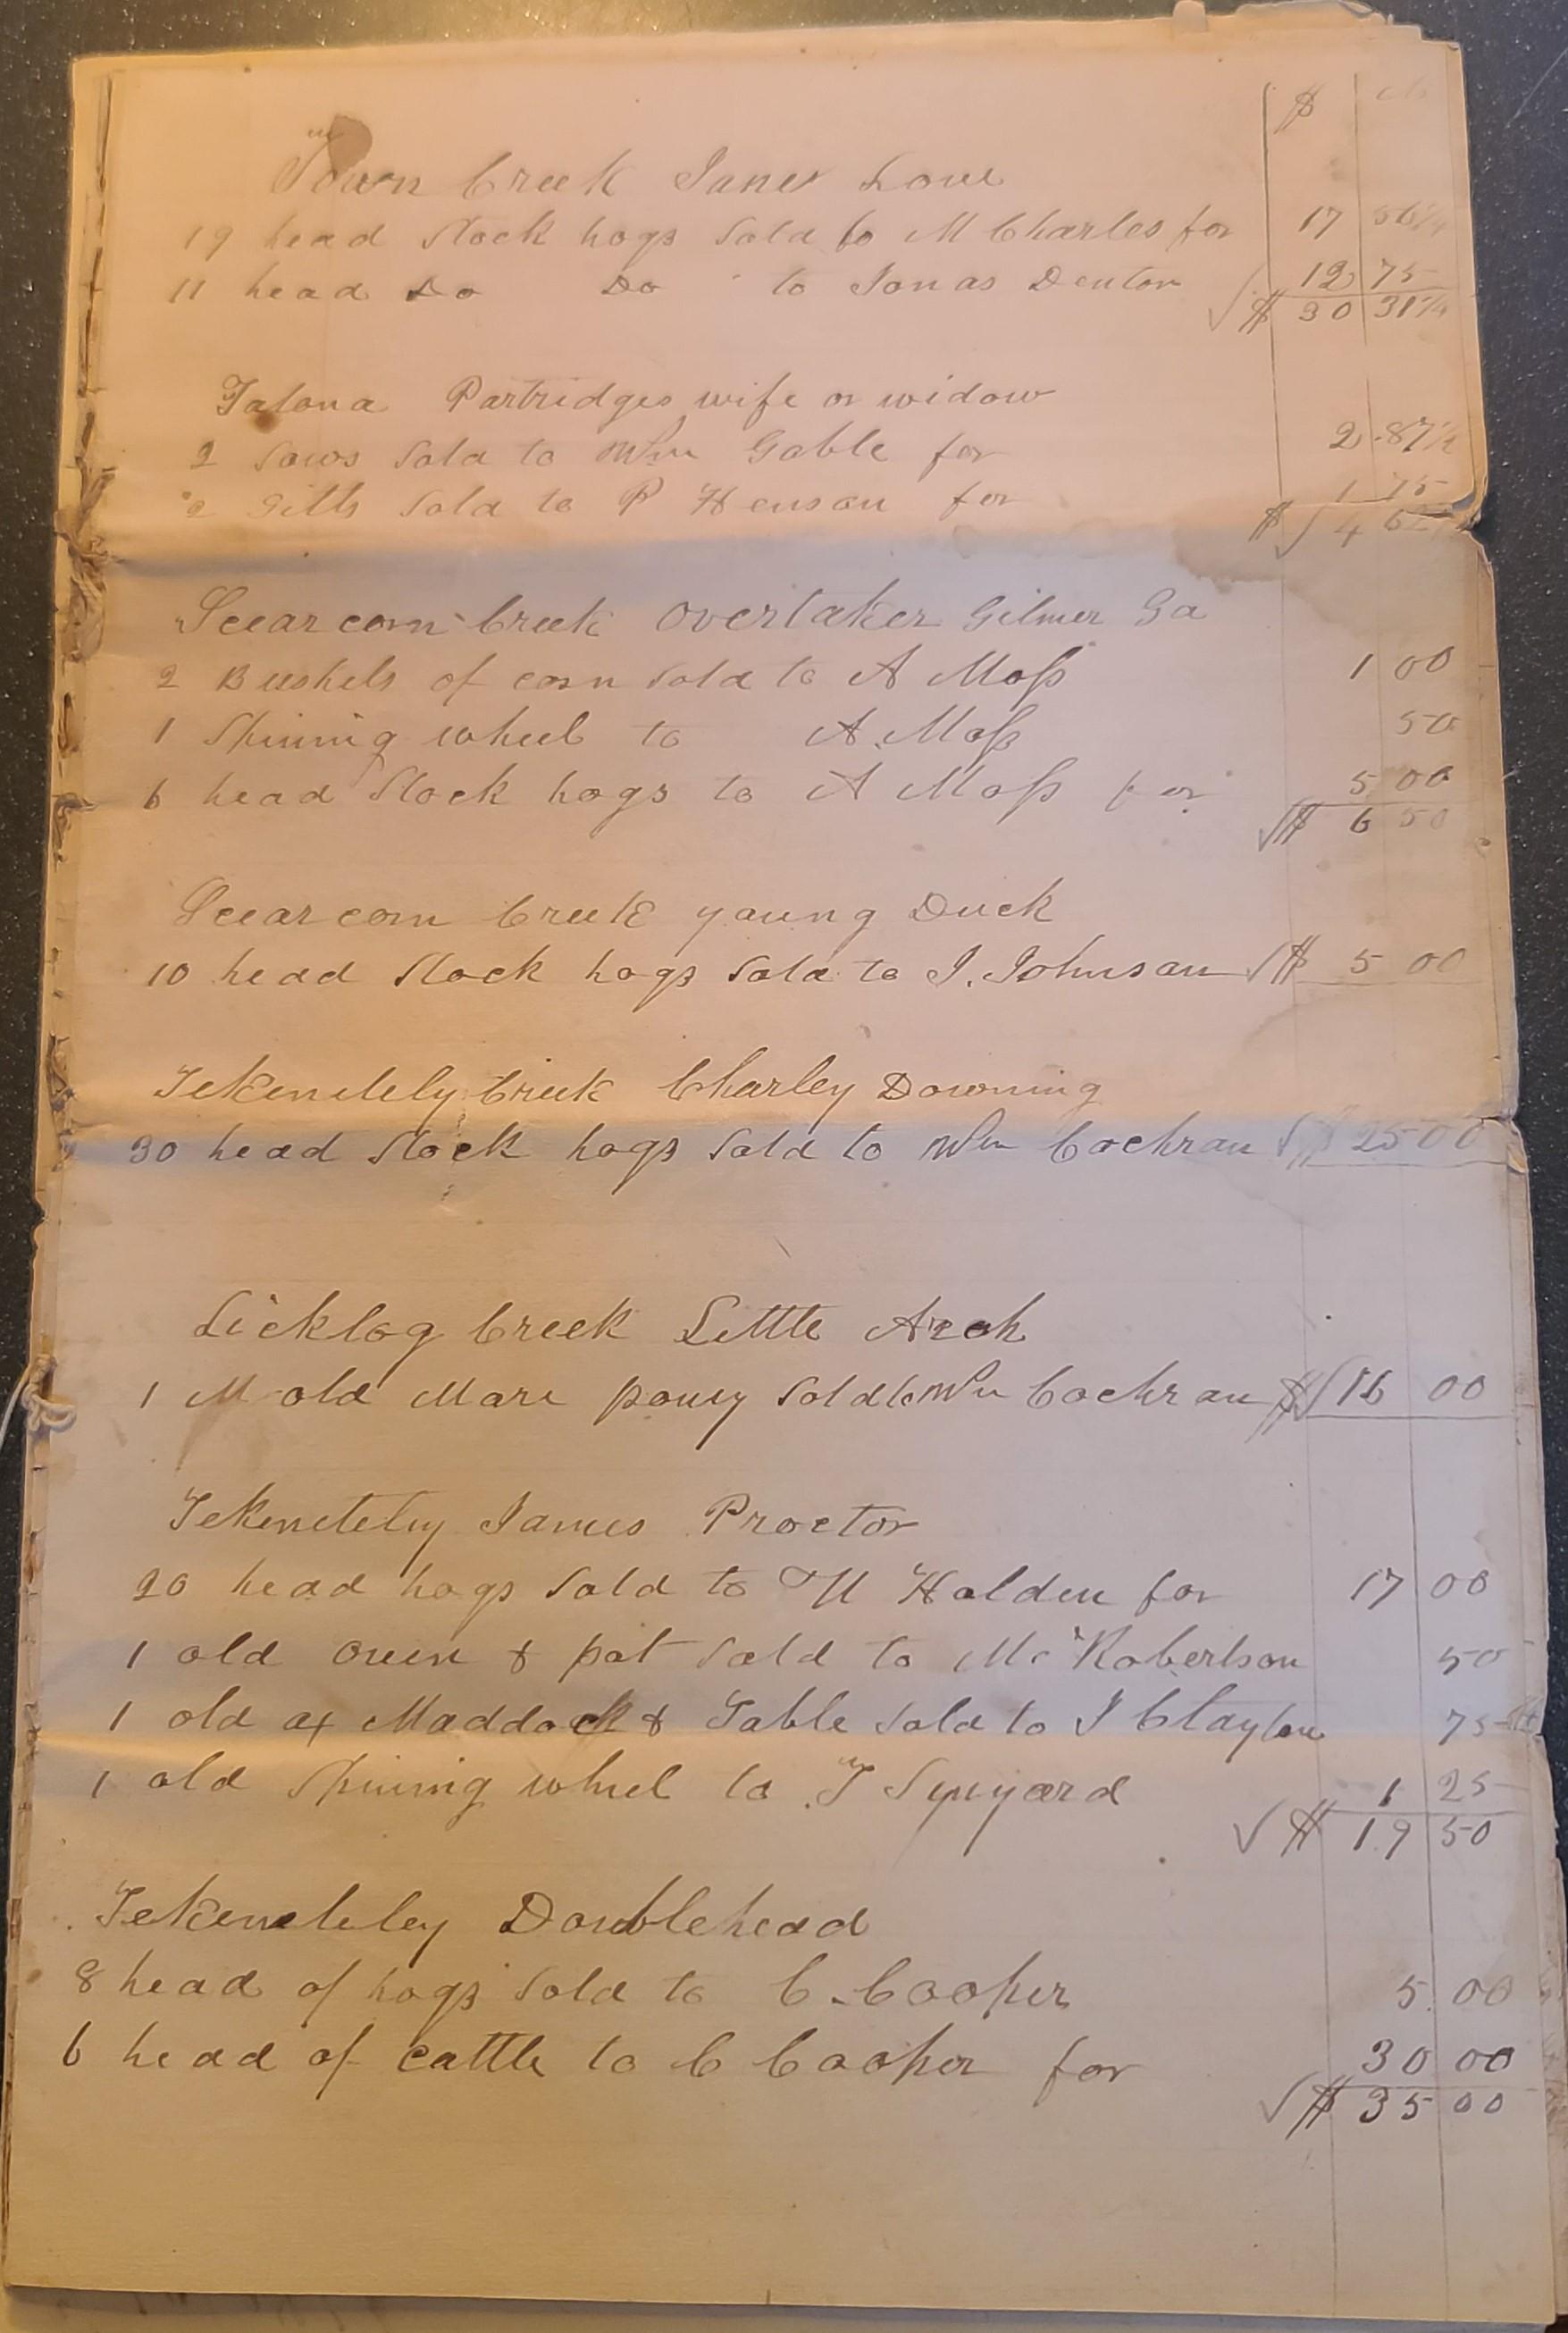 $ cts
Town Creek Janes Love
19 head Stock hogs Sold to M Charles for 17 56 1/4
11 head Do Do to Jonas Denton 12 75
$ 30 31 1/4
Talona Partridges wife or widow
2 Sows Sold to Wm Gable for 2.87 1/2
2 Gilts Sold to P Henson for 1 75
$ 4 62 1/2
Scearcorn Creek Overtaker Gilmer Ga
2 Bushels of corn Sold to A Moss 1 00
1 Spining wheel to A. Moss 50
6 head Stock hogs to A Moss for 5 00
$ 6 50
Scearcorn Creek young Duck
10 head Stock hogs Sold to J. Johnson $ 5 00
Tekenetely Creek Charley Downing
30 head Stock hogs Sold to Wm Cochran $ 25 00
Licklog Creek Little Arch
1 old Mare poney Sold to Wm Cochran $ 16 00
Tekenetely James Proctor
20 head hogs Sold to Holden for 17 00
1 old oven & pot Sold to Mc Robertson 50
1 old ax Maddock & Table Sold to J Clayton 75
1 old Spining wheel to T 1 25
$ 19 50
Tekeneteley Doublehead
8 head of hogs Sold to C. Cooper 5.00
6 head of cattle to C Cooper for 30 00
$ 35 00